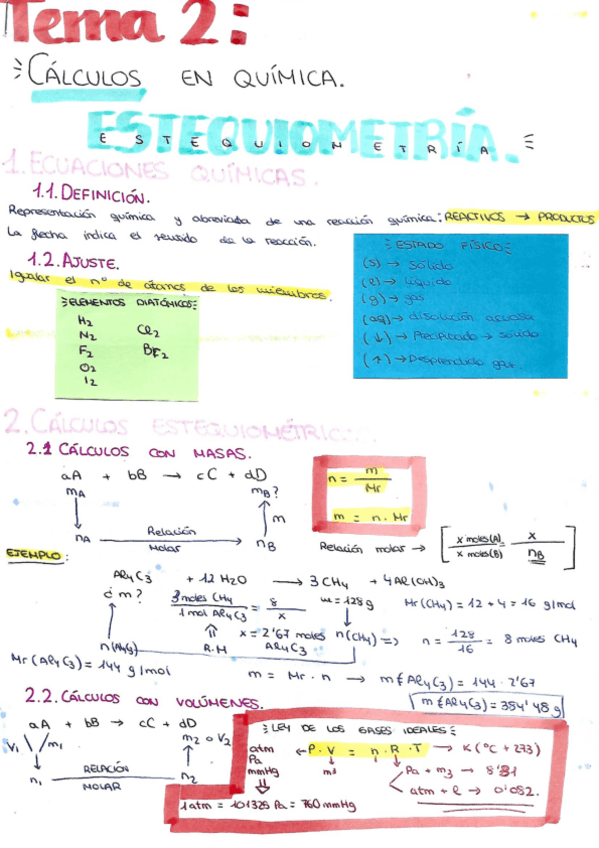 Tema 2:
CÁLCULOS EN QUÍMICA.
ESTEQUIOMETRÍA.
ESTEQUIOMETRÍA
1. ECUACIONES QUÍMICAS.
1.1. DEFINICIÓN.
Representación química y abreviada de una reacción química: REACTIVOS → PRODUCTOS
La flecha indica el sentido de la reacción.
1.2. AJUSTE.
Igualar el nº de átomos de los miembros.
ELEMENTOS DIATÓNICOS:
H2
N2
F2
O2
I2
Cl2
Br2
ESTADO FÍSICO
(s) → sólido
(l) → líquido
(g) → gas
(aq) → disolución acuosa
(↓) → Precipitado → sólido
(↑) → Desprendido gas.
2. CÁLCULOS ESTEQUIOMÉTRIC
2.1 CÁLCULOS CON MASAS.
aA + bB → cC + dD
mA mB?
m
nA Relación Molar nB
n = m / Mr
m = n · Mr
Relación molar → [x moles(A) / x moles(B) = x / nB]
EJEMPLO:
Al4C3 + 12 H2O → 3 CH4 + 4 Al(OH)3
¿m? 3 moles CH4 / 1 mol Al4C3 = 8 / x m = 128 g Mr(CH4) = 12 + 4 = 16 g/mol
R.M x = 2'67 moles Al4C3 n(CH4) ⇒ n = 128 / 16 = 8 moles CH4
Mr(Al4C3) = 144 g/mol m = Mr · n → m(Al4C3) = 144 · 2'67
m(Al4C3) = 354'48 g
2.2. CÁLCULOS CON VOLÚMENES.
aA + bB → cC + dD
V1 m1 m2 o V2
n1 RELACIÓN MOLAR n2
LEY DE LOS GASES IDEALES
atm ← P · V = n · R · T → K (ºC + 273)
Pa m3
mmHg
Pa + m3 → 8'31
atm + l → 0'082.
1 atm = 101325 Pa = 760 mmHg